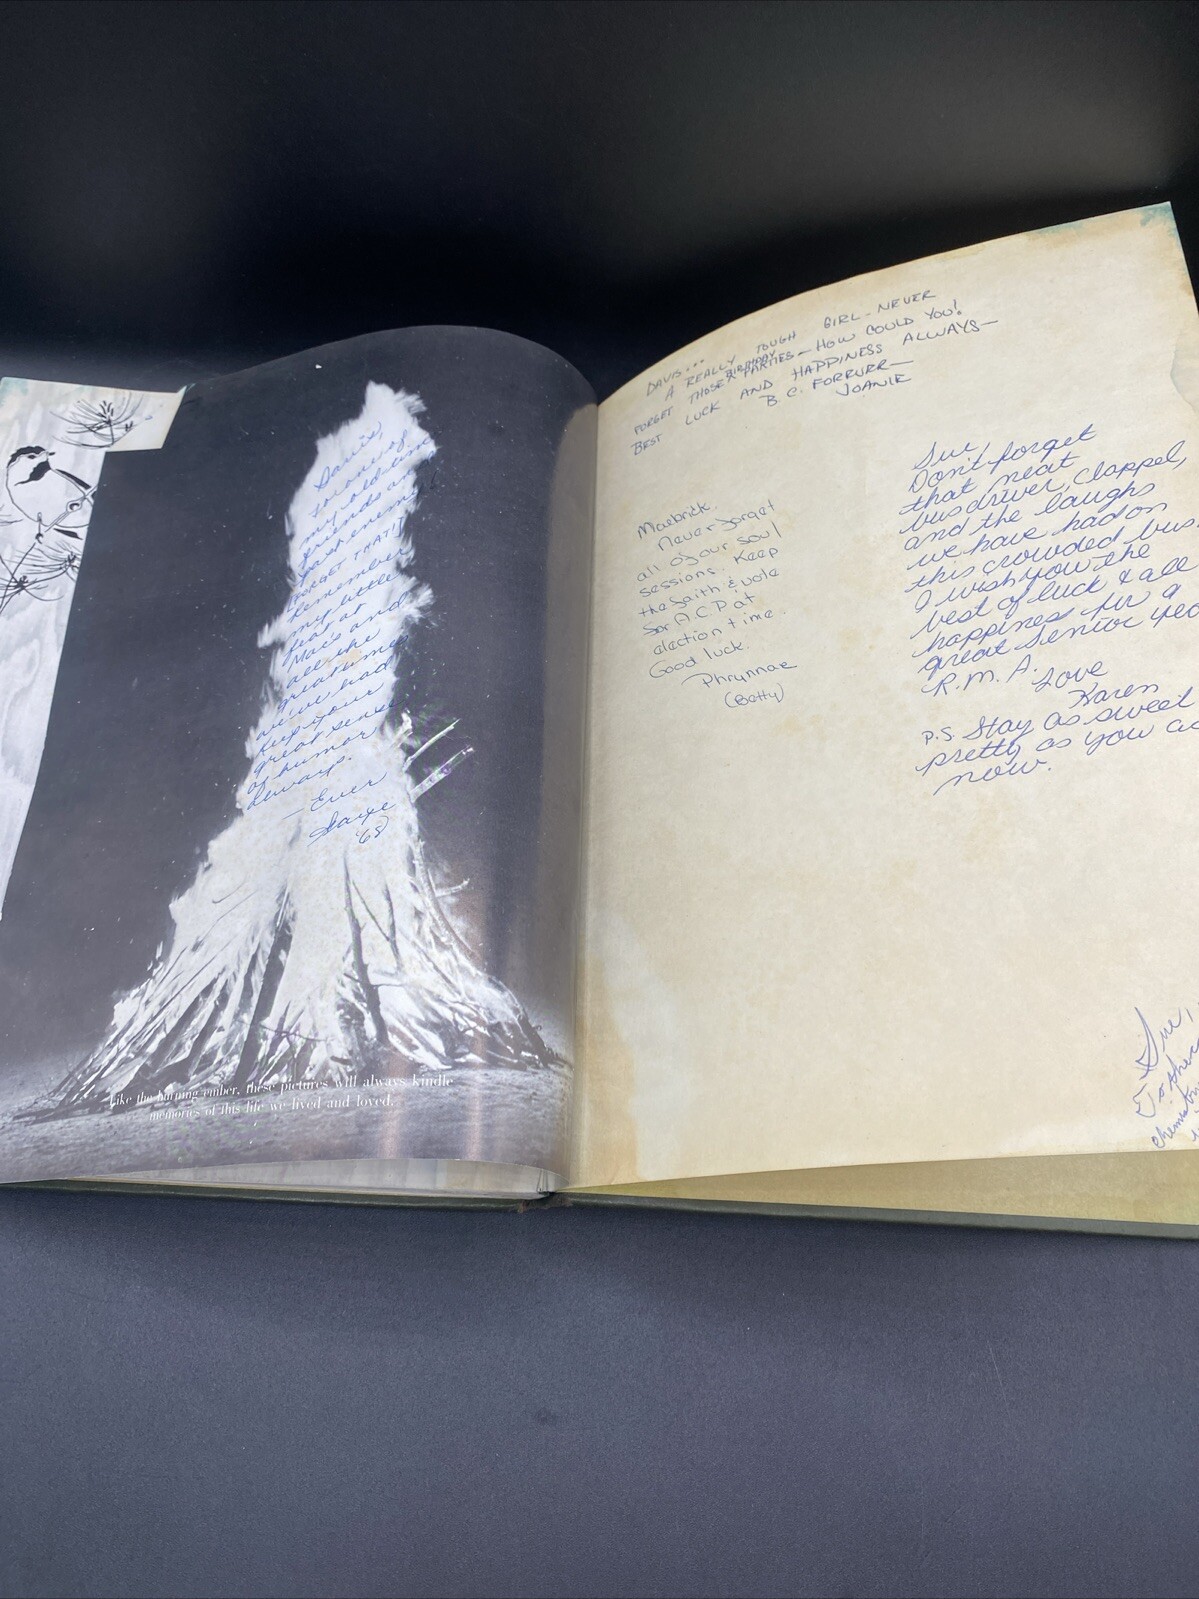 Davie,
to one of
my old-time
friends and
past enemy!
FORGET THAT!!
Remember
my little
feat at
Mac's and
all the
great times
we've had
Keep your
great sense
of humor
always.
— Ever
'68
Like the burning ember, these pictures will always kindle
memories of this life we lived and loved.
DAVIS...
A REALLY TOUGH GIRL - NEVER
FORGET THOSE BIRTHDAY PARTIES - HOW COULD YOU!
BEST LUCK AND HAPPINESS ALWAYS -
B.C. FORRURR -
JOANIE
Maebrick,
Never forget
all of your soul
sessions. Keep
the faith & vote
for A.C.P at
election time.
Good luck.
Phrynnae
(Betty)
Sue,
Don't forget
that neat
bus driver, Clappel,
and the laughs
we have had on
this crowded bus.
I wish you the
best of luck & all
happiness for a
great Senior
R.M.A.
Love
Karen
P.S. Stay as sweet
pretty as you
now.
Sue,
To